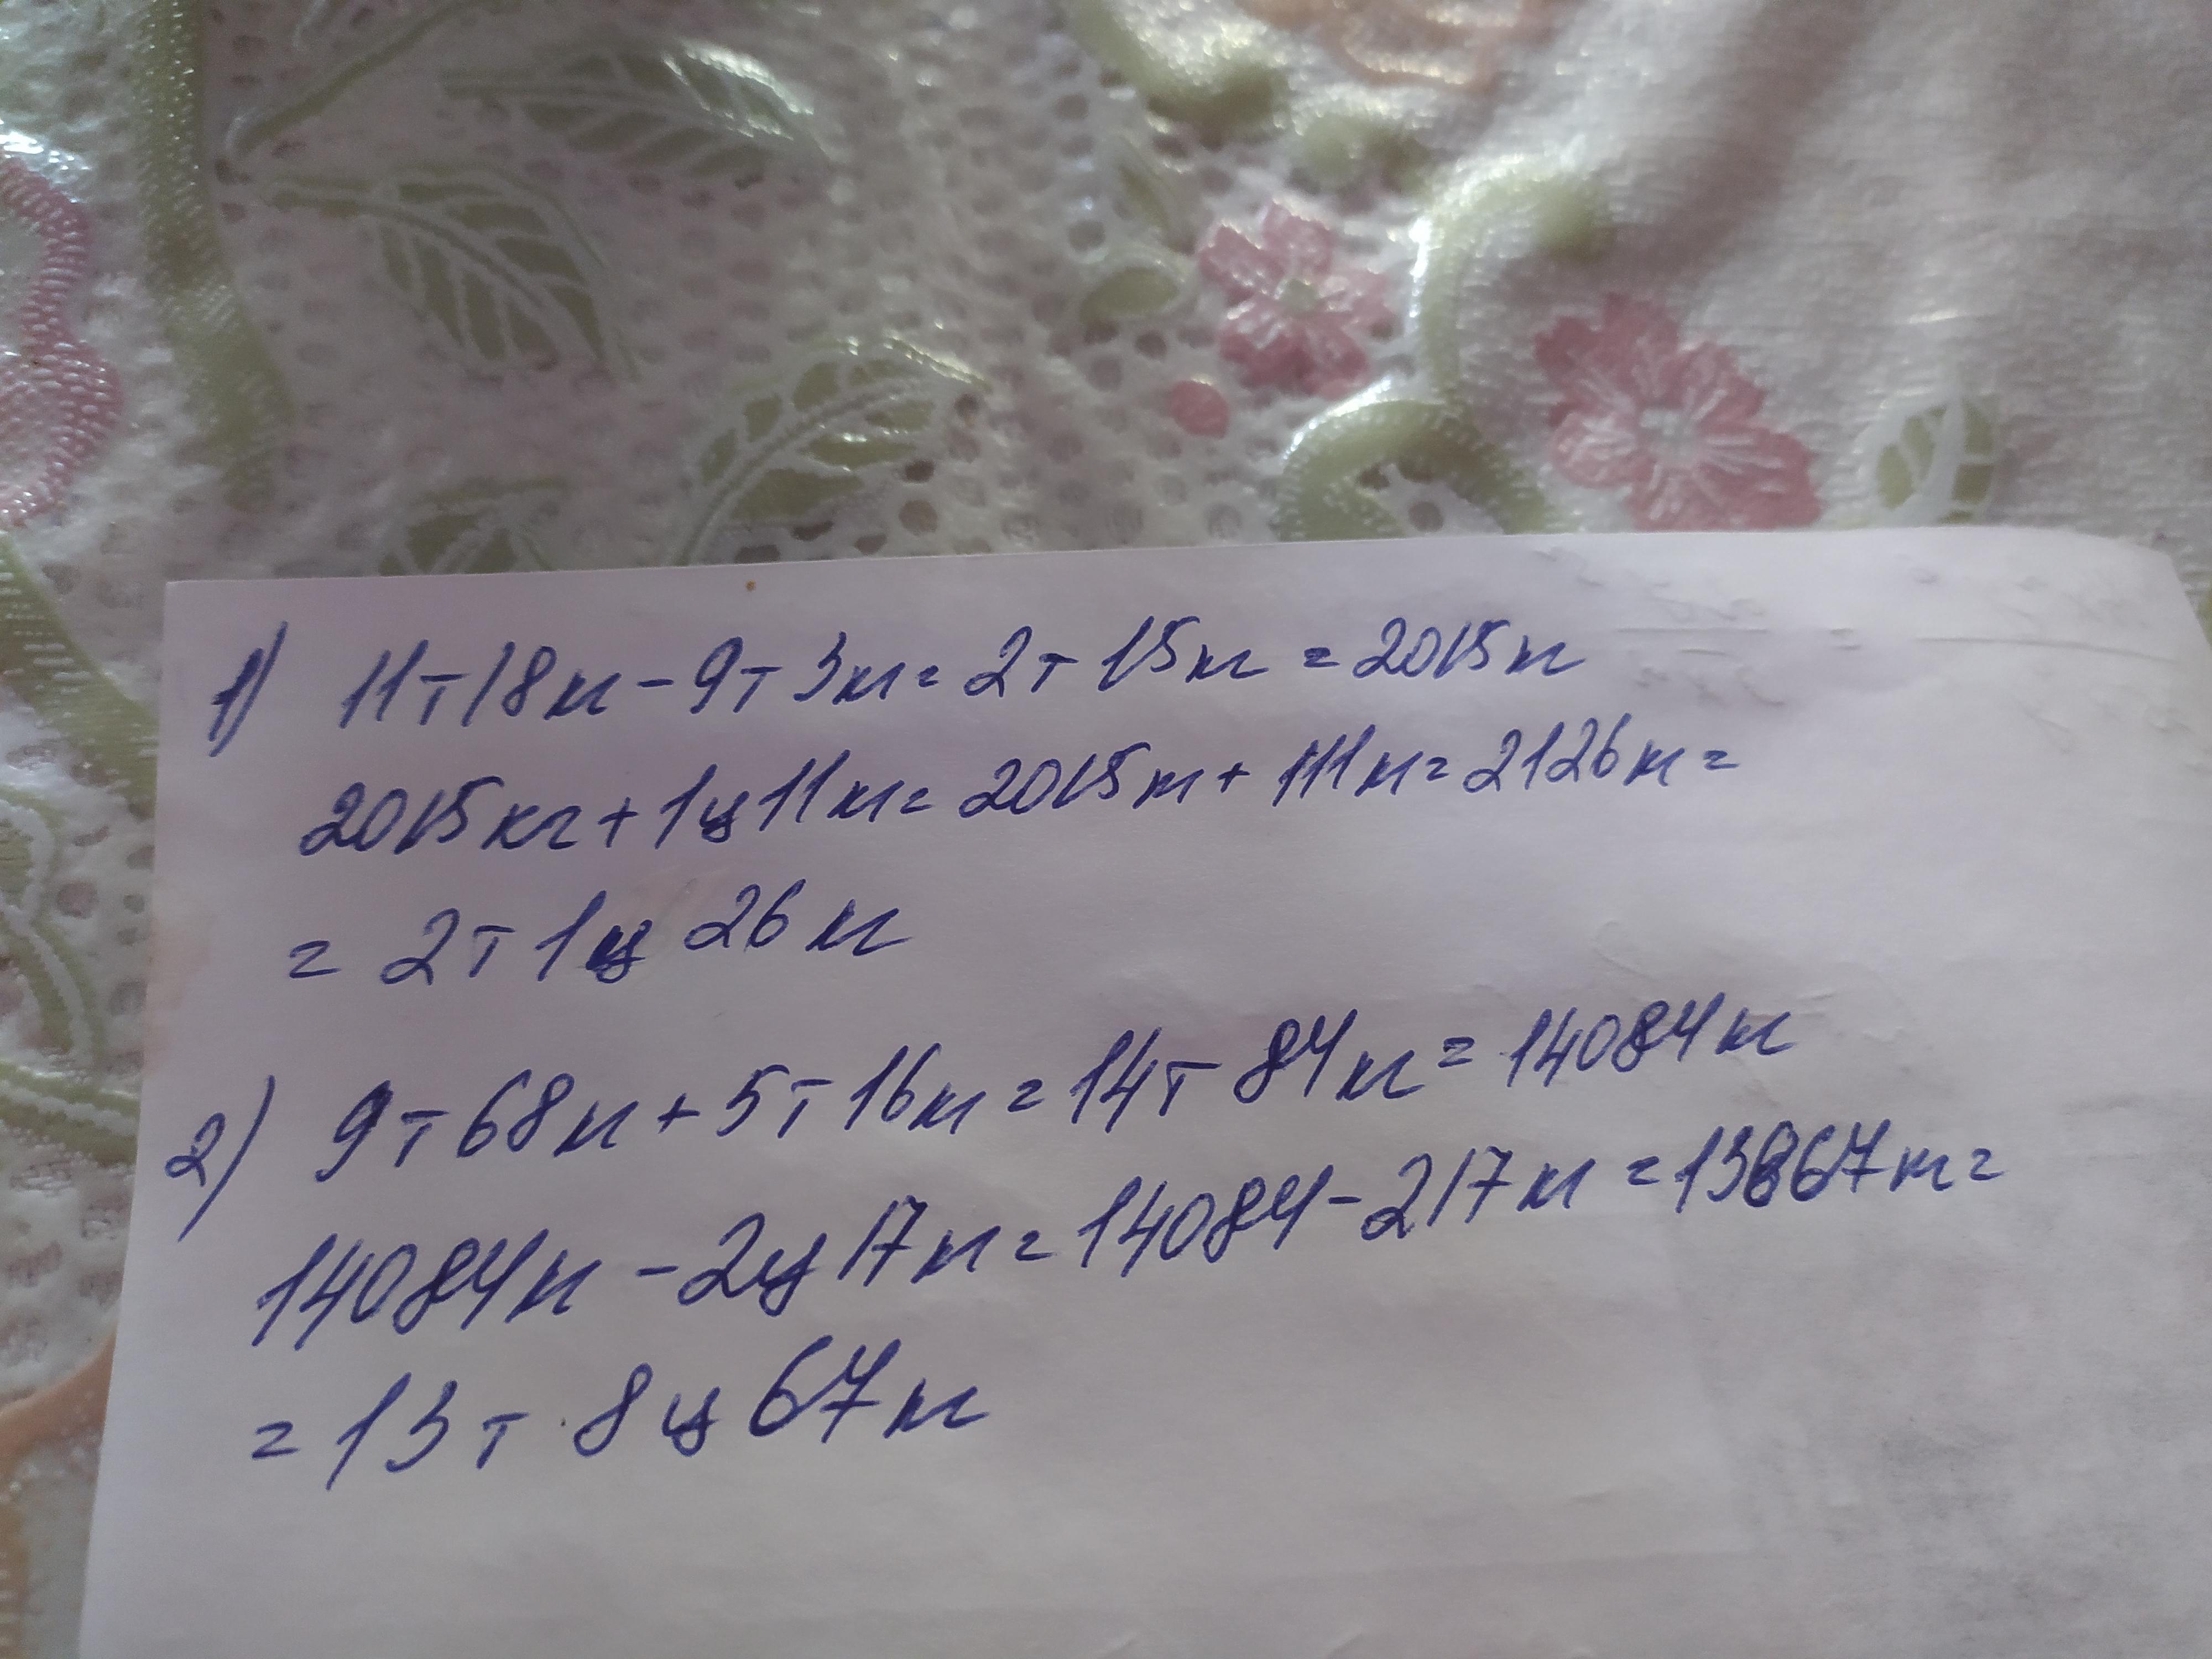 1) 11т 18кг - 9т 3кг = 2т 15кг = 2015кг
2015кг + 1ц 11кг = 2015кг + 111кг = 2126кг =
= 2т 1ц 26кг
2) 9т 68кг + 5т 16кг = 14т 84кг = 14084кг
14084кг - 2ц 17кг = 14084 - 217кг = 13867кг =
= 13т 8ц 67кг